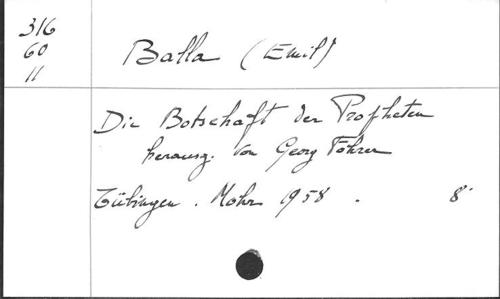 316
60
11
Balla (Emil)
Die Botschaft der Propheten
herausg. von Georg Fohrer
Tübingen. Mohr 1958. 8°